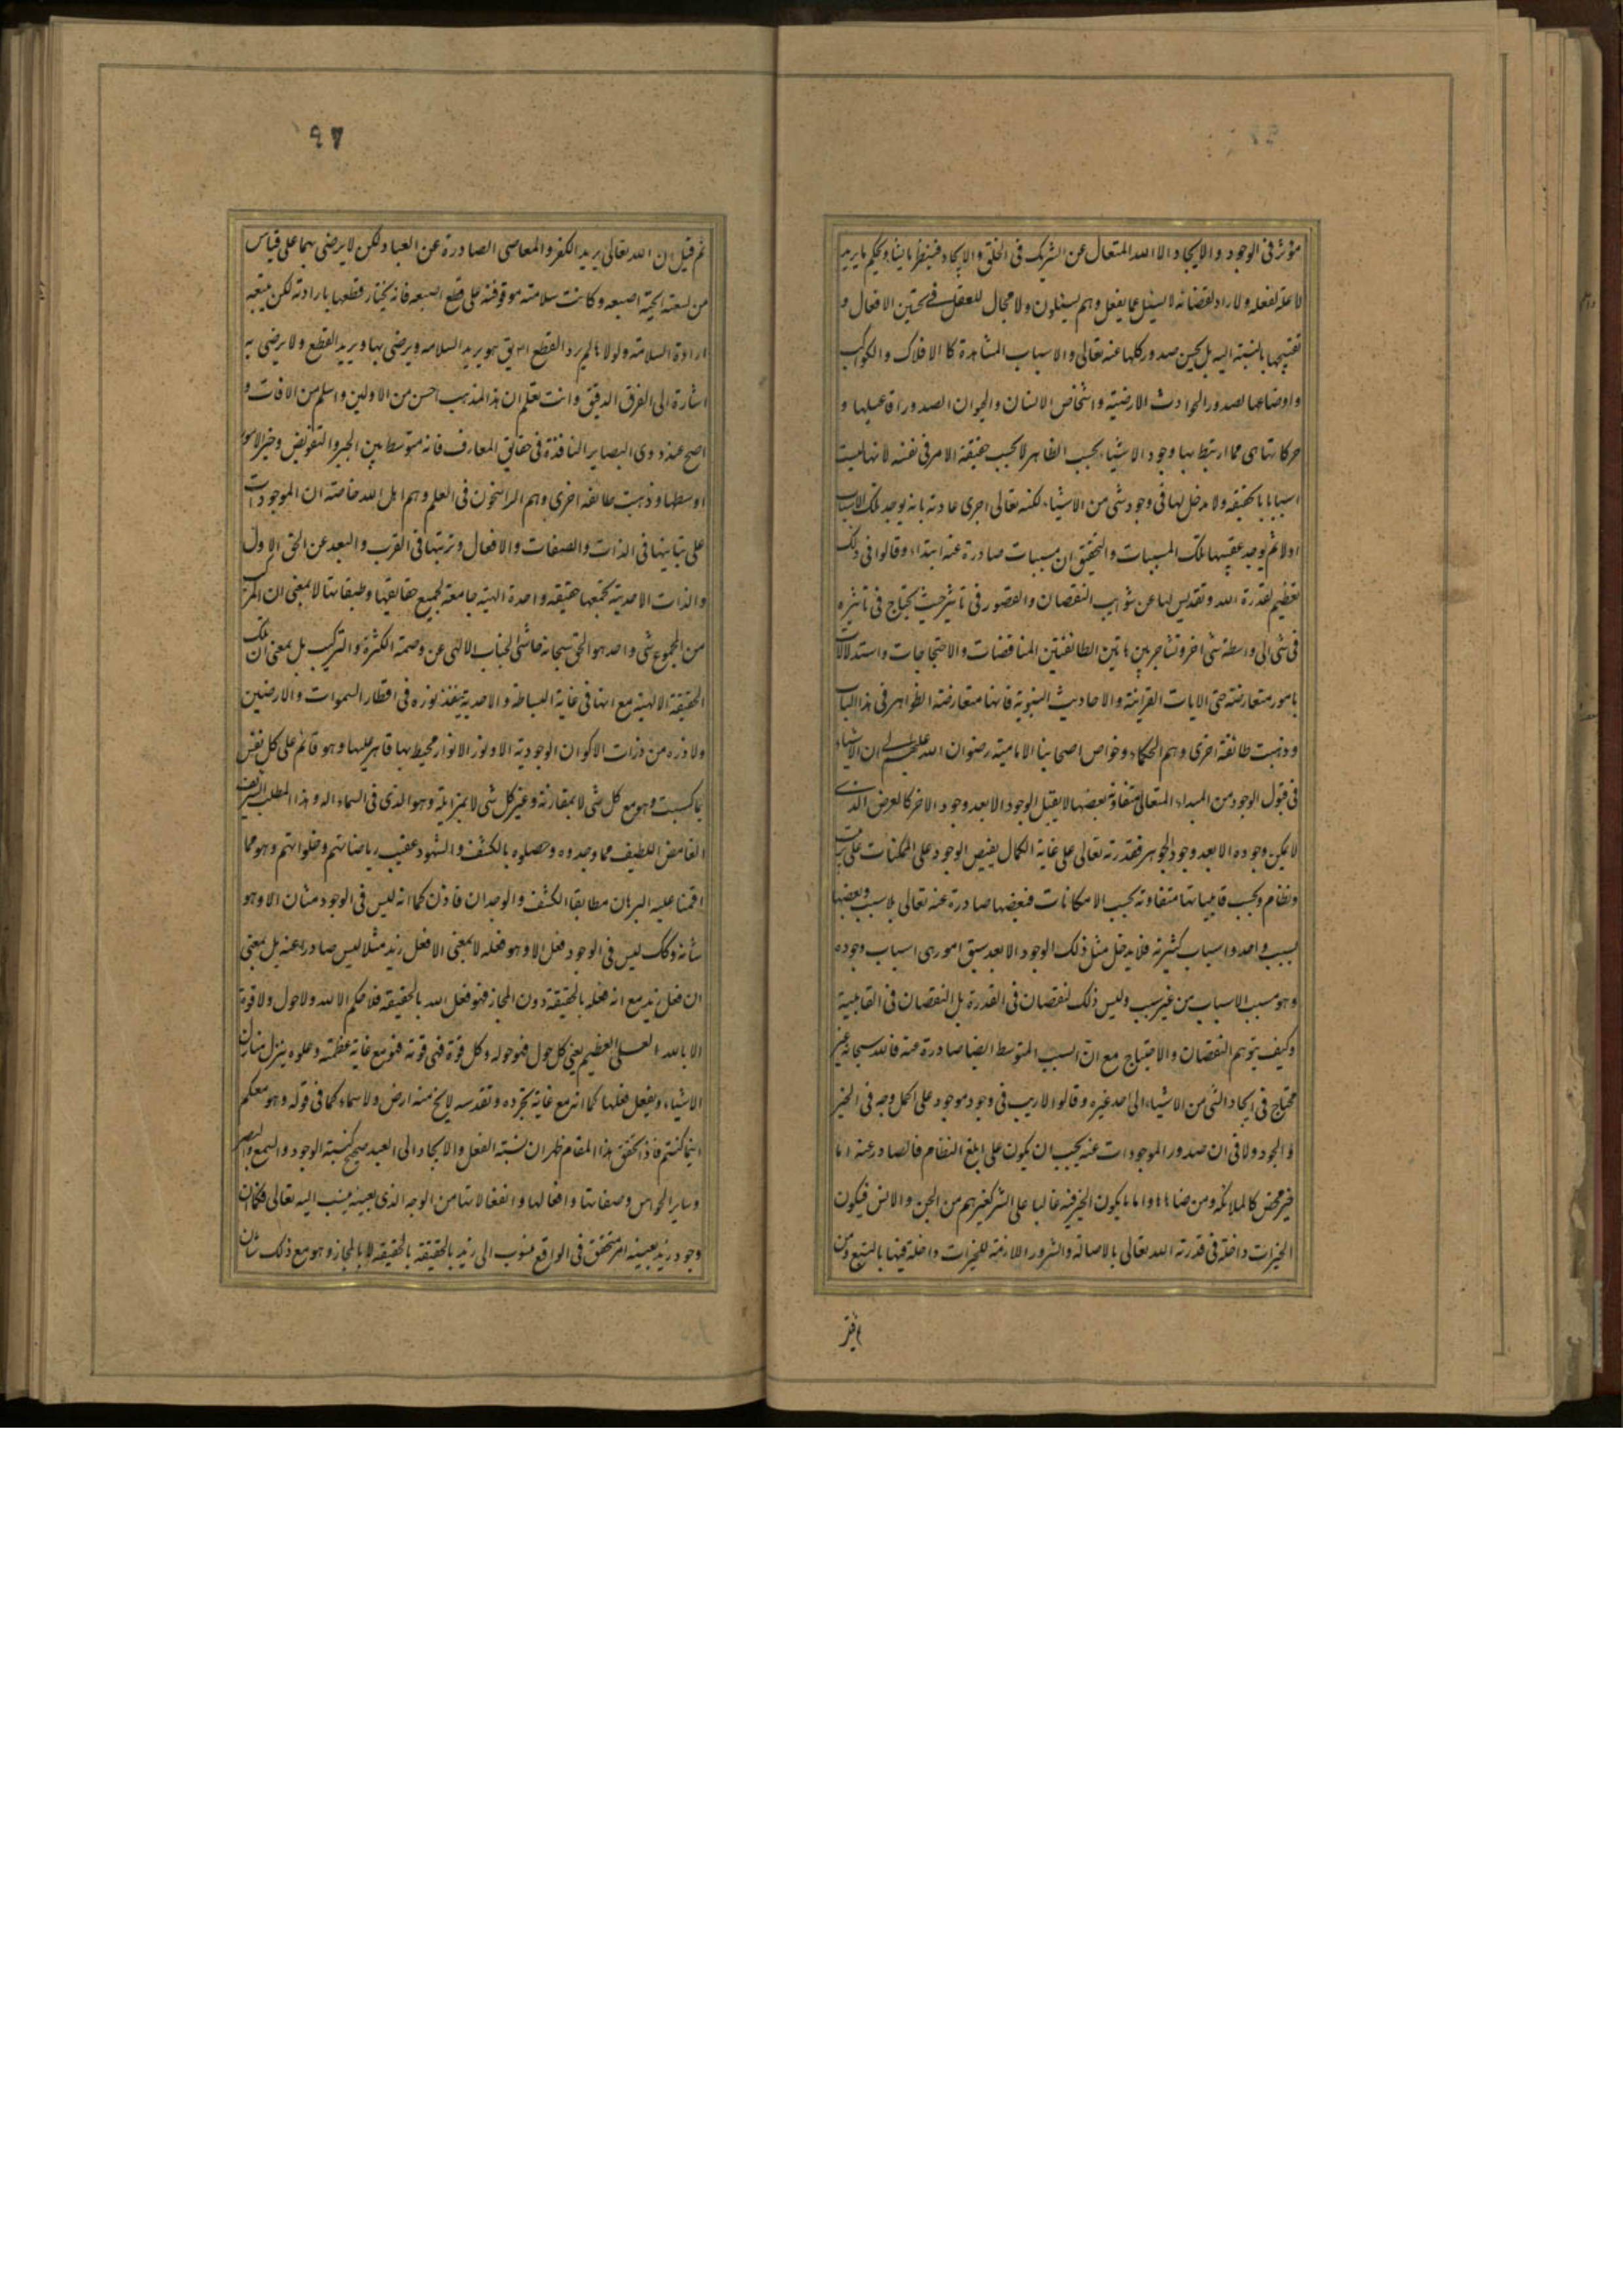 مؤثر فى الوجود و الايجاد الا الله المتعال عن الشريك فى الخلق و الايجاد فيفعل ما يشاء و يحكم ما يريد
لا علة لفعله و لا راد لقضائه لا يسئل عما يفعل و هم يسئلون و لا مجال للعقل فى تحسين الافعال و
تقبيحها بالنسبة اليه بل يحسن صدور كلها عنه تعالى و الاسباب المشاهدة كا الافلاك و الكواكب
و اوضاعها لصدور الحوادث الارضية و اشخاص الانسان و الحيوان لصدور افاعيلها و
حركاتها هى مما ارتبط بها وجود الاشياء بحسب الظاهر لا بحسب حقيقة الامر فى نفسه لانها ليست
اسبابا بالحقيقه و لا مدخل لها فى وجود شى من الاشياء لكنه تعالى اجرى عادته بانه يوجد تلك الاسباب
اولا ثم يوجد عقيبها تلك المسببات و التحقيق ان مسببات صادرة عنه ابتداء و قالوا فى ذلك
تعظيم لقدرة الله و تقديس لها عن شوايب النقصان و القصور فى تاثير حيث يحتاج فى تاثيره
فى شى الى واسطة شى اخر و تشاجر بين هاتين الطائفتين المناقضات و الاحتجاجات و استدلالات
بامور متعارضة حتى الايات القرانية و الاحاديث النبوية فانها متعارضة الظواهر فى هذا الباب
و ذهبت طائفة اخرى و هم الحكماء و خواص اصحابنا الامامية رضوان الله عليهم الى ان الاشياء
فى قبول الوجود من المبداء المتعالى متفاوتة بعضها لا يقبل الوجود الا بعد وجود الاخر كالعرض الذى
لا يمكن وجوده الا بعد وجود الجوهر فقدرته تعالى على غاية الكمال يفيض الوجود على الممكنات على ترتيب
و نظام و بحسب قابلياتها متفاوته بحسب الامكانات فبعضها صادرة عنه تعالى بلا سبب و بعضها
بسبب واحد و اسباب كثيرة فلا يدخل مثل ذلك الوجود الا بعد سبق امور هى اسباب وجوده
و هو مسبب الاسباب من غير سبب و ليس ذلك لنقصان فى القدرة بل النقصان فى القابلية
و كيف يتوهم النقصان و الاحتياج مع ان السبب المتوسط ايضا صادرة عنه فالله سبحانه غير
محتاج فى ايجاد الشى من الاشياء الى احد غيره و قالوا لا ريب فى وجود موجود على اكمل وجه فى الخير
و الجود و لا فى ان صدور الموجودات عنه يجب ان يكون على ابلغ النظام فالصادر عنه اما
خير محض كالملائكة و من ضاهاها و اما ما يكون الخير فيه غالبا على الشر كغيرهم من الجن و الانس فيكون
الخيرات داخلة فى قدرة الله تعالى بالاصالة و الشرور اللازمة للخيرات داخلة فيها بالتبع و من
ثم قيل ان الله تعالى يريد الكفر و المعاصى الصادرة عن العباد لكن لا يرضى بهما على قياس
من لسعته الحية اصبعه و كانت سلامته موقوفة على قطع اصبعه فانه يختار قطعها بارادته لكن بتبعية
ارادة السلامة و لولاها لم يرد القطع اصلا يق هو يريد السلامه و يرضى بها و يريد القطع و لا يرضى به
اشارة الى الفرق الدقيق و انت تعلم ان هذا المذهب احسن من الاولين و اسلم من الافات و
اصح عند ذوى البصاير النافذة فى حقايق المعارف فانه متوسط بين الجبر و التفويض و خير الامور
اوسطها و ذهبت طائفة اخرى و هم الراسخون فى العلم و هم اهل الله خاصته ان الموجودات
على تباينها فى الذات و الصفات و الافعال و ترتبها فى القرب و البعد عن الحق الاول
و الذات الاحدية تجمعها حقيقة واحدة الهية جامعة لجميع حقايقها و طبقاتها لا بمعنى ان المركب
من المجموع شى واحد هو الحق سبحانه حاشى الجناب الالهى عن وصمة الكثرة و التركيب بل بمعنى ان تلك
الحقيقة الالهية مع انها فى غاية البساطة و الاحدية ينفذ نوره فى اقطار السموات و الارضين
و لا ذره من ذرات الاكوان الوجودية الا و نور الانوار محيط بها قاهر عليها و هو قائم على كل نفس
بما كسبت و هو مع كل شى لا بمقارنة و غير كل شى لا بمزايلة و هو الذى فى السماء اله و هذا المطلب الشريف
الغامض اللطيف مما وجدوه و حصلوه بالكشف و الشهود عقيب رياضاتهم و خلواتهم و هو مما
اقمنا عليه البرهان مطابقا للكشف و الوجدان فاذن كما انه ليس فى الوجود شان الا و هو
شانه و كك ليس فى الوجود فعل الا و هو فعله لا بمعنى الا فعل زيد مثلا ليس صادرا عنه بل بمعنى
ان فعل زيد مع انه فعله بالحقيقة دون المجاز فهو فعل الله بالحقيقة فلا حكم الا لله و لا حول و لا قوة
الا بالله العلى العظيم يعنى كل حول فهو حوله و كل قوة فهى قوته فهو مع غاية عظمته و علوه ينزل منازل
الاشياء و يفعل فعلها كما انه مع غاية تجرده و تقدسه لا يخ منه ارض و لا سماء كما فى قوله و هو معكم
اينما كنتم فاذا تحقق هذا المقام ظهر ان نسبة الفعل و الايجاد الى العبد صحيح كنسبة الوجود و السمع و البصر
و ساير الحواس و صفاتها و افعالها و انفعالاتها من الوجه الذى بعينه ينسب اليه تعالى فكما ان
وجود زيد بعينه امر متحقق فى الواقع منسوب الى زيد بالحقيقة بالحقيقة لا بالمجاز و هو مع ذلك شان